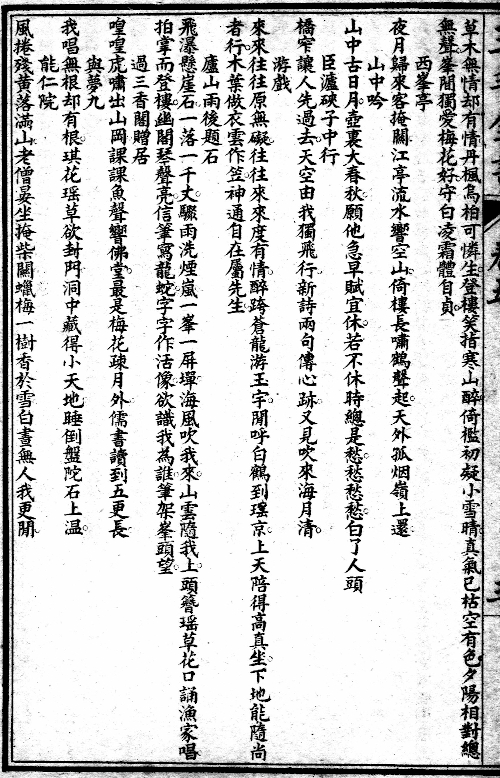 草木無情却有情丹楓烏桕可憐生登樓笑指寒山醉倚檻初凝小雪晴真氣已枯空有色夕陽相對總
無聲峯閣獨愛梅花好守白凌霜體自貞
西峯亭
夜月歸來客掩關江亭流水響空山倚樓長嘯鶴聲起天外孤烟嶺上還
山中吟
山中古日月壺裏大春秋願他急早賦宜休若不休時總是愁愁愁愁白了人頭
臣瀘硤子中行
橋窄讓人先過去天空由我獨飛行新詩兩句傳心跡又見吹來海月清
游戲
來來往往原無礙往往來來度有情醉跨蒼龍游玉宇閒呼白鶴到瑤京上天陪得高真坐下地能隨尚
者行木葉做衣雲作笠神通自在屬先生
廬山雨後題石
飛瀑懸崖石一落一千丈驟雨洗煙嵐一峯一屏障海風吹我來山雲隨我上頭簪瑤草花口誦漁家唱
拍掌而登樓幽閣琴聲亮信筆寫龍蛇字字作活像欲識我為誰筆架峯頭望
過三香閣贈居
喤喤虎嘯出山岡課課魚聲響佛堂最是梅花疎月外儒書讀到五更長
與夢九
我唱無根却有根琪花瑶草欲封門洞中藏得小天地睡倒盤陀石上温
能仁院
風捲殘黃落滿山老僧晏坐掩柴關蠟梅一樹香於雪白晝無人我更閒